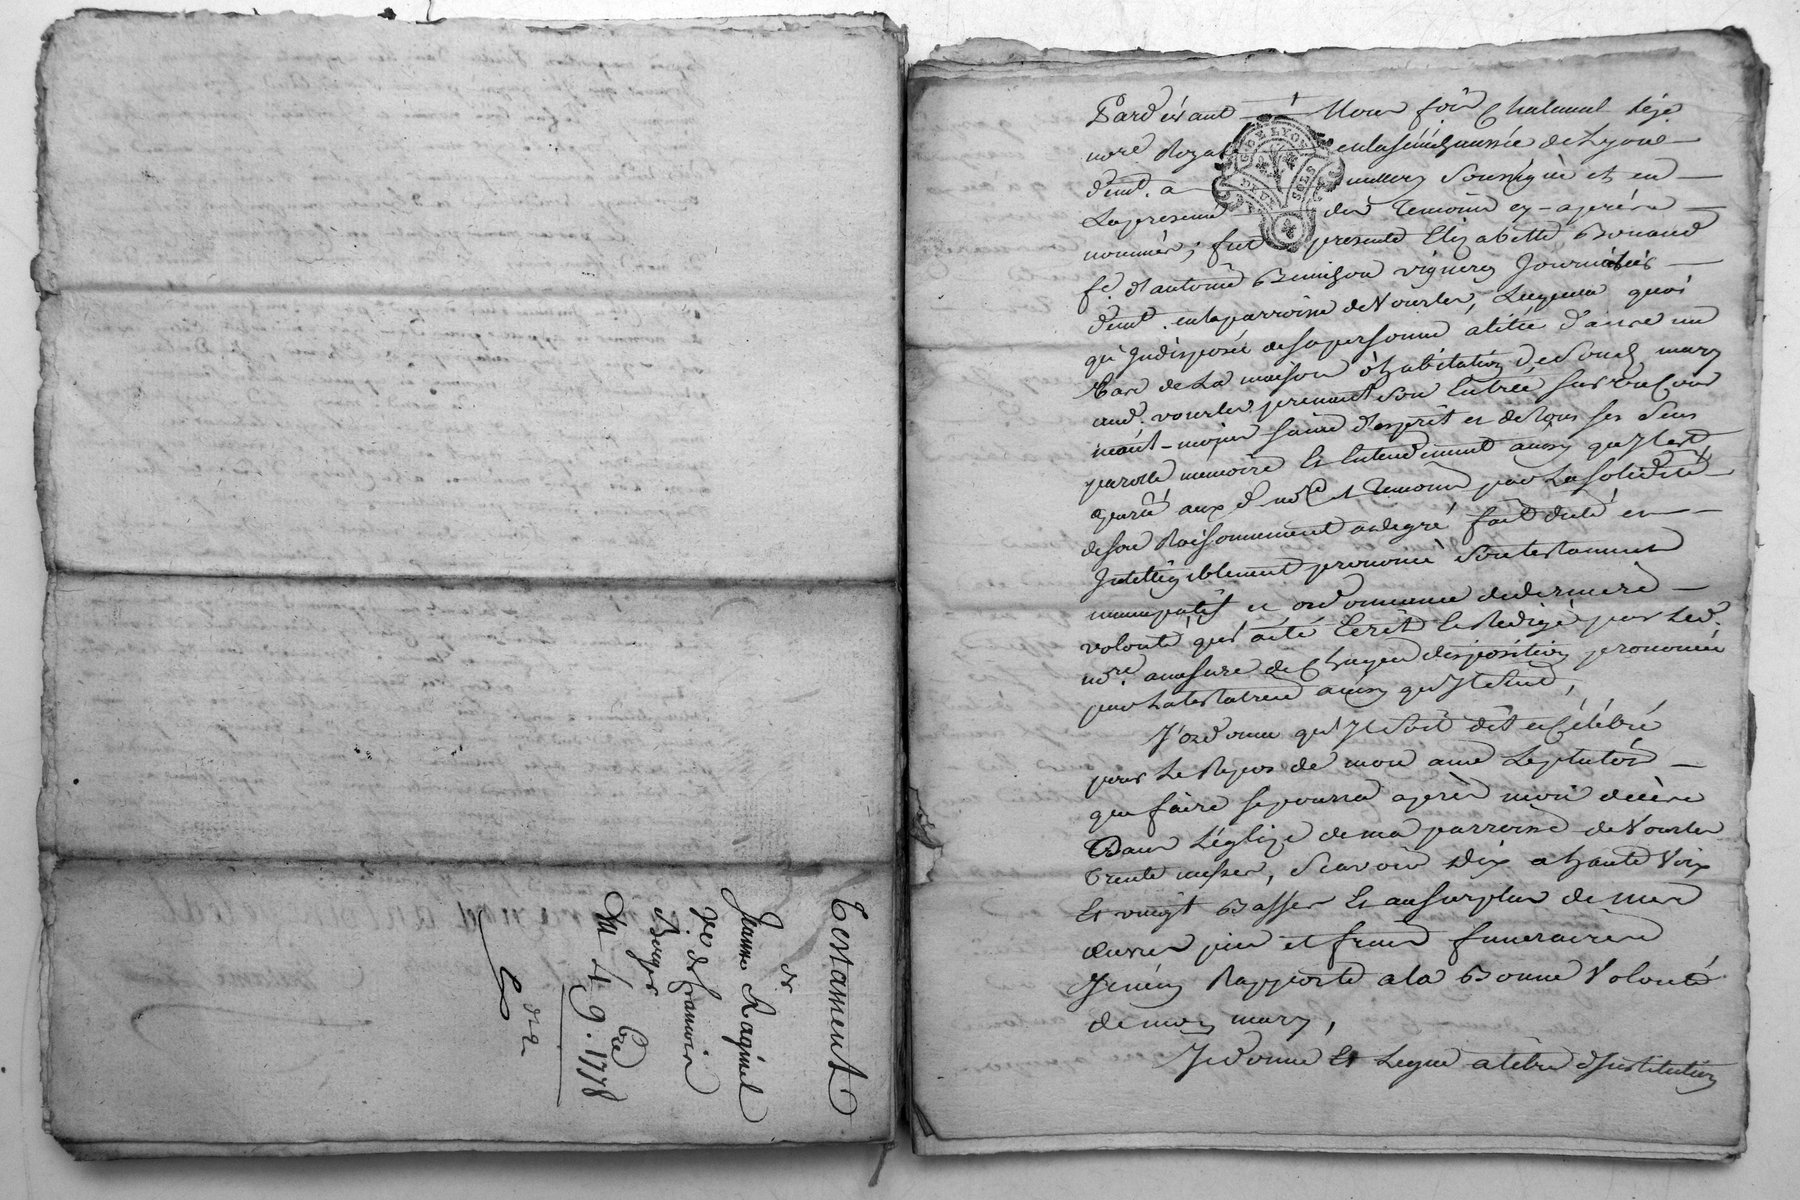 Testament
de
Jeanne Raginel
Ve. de francois
Berger
Du 4 9.bre 1778
Pardevant
nore Royal en la sénéchaussée de Lyon
demt. a millery soussigné et en
La presence des Temoins cy-après
nommés; fut presente Elizabette Bonand
fe. d'antoine vigneron Journalier
demt. en la parroisse de Vourles, Laquelle quoi
qu'Indisposée de sa personne alitée dans un
Bas de La maison d'habitation de son d. mary
aud. vourles prenant son Entrée sur
néant-moins saine d'esprit et de tous ses sens
parolle memoire Et Entendement ainsy qu'Il est
aparu aux d. nore et Temoins par La solidité
de son Raisonnement a de gré fait dicté et
Intelligiblement prononcé son testament
nuncupatif et ordonnance de derniere
volonté, qui a été Ecrit Et Redigé par Led.
nore. a mesure de Chaque disposition prononcée
par La testatrice ainsy qu'Il suit,
J'ordonne qu'Il soit dit et Célébré
pour Le Repos de mon ame Le plutôt
que faire se pourra après mon décès
Dans L'églize de ma parroisse de Vourles
trente messes, scavoir dix a haute Voix
Et vingt Basses Et au surplus de mes
œuvres pies et frais funeraires
J'en Rapporte a la Bonne Volonté
de mon mary,
Je donne Et Legue a titre d'Institution